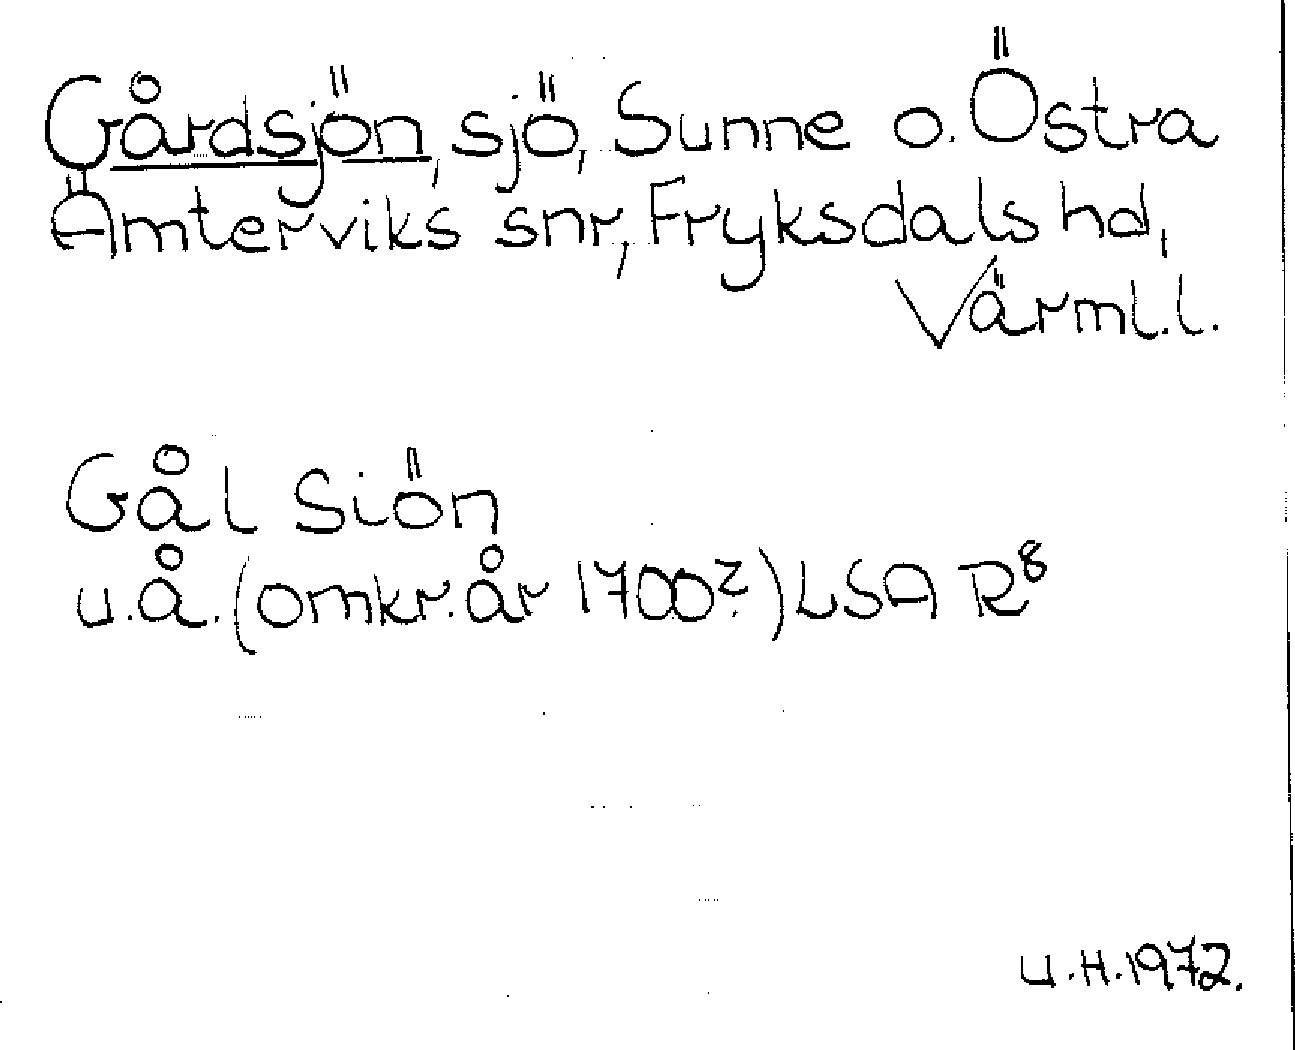 Gårdsjön, sjö, Sunne o. Östra
Ämterviks snr, Fryksdals hd,
Värml.l.
Gål Siön
u.å. (omkr. år 1700?) LSA R⁸
U.H. 1972.